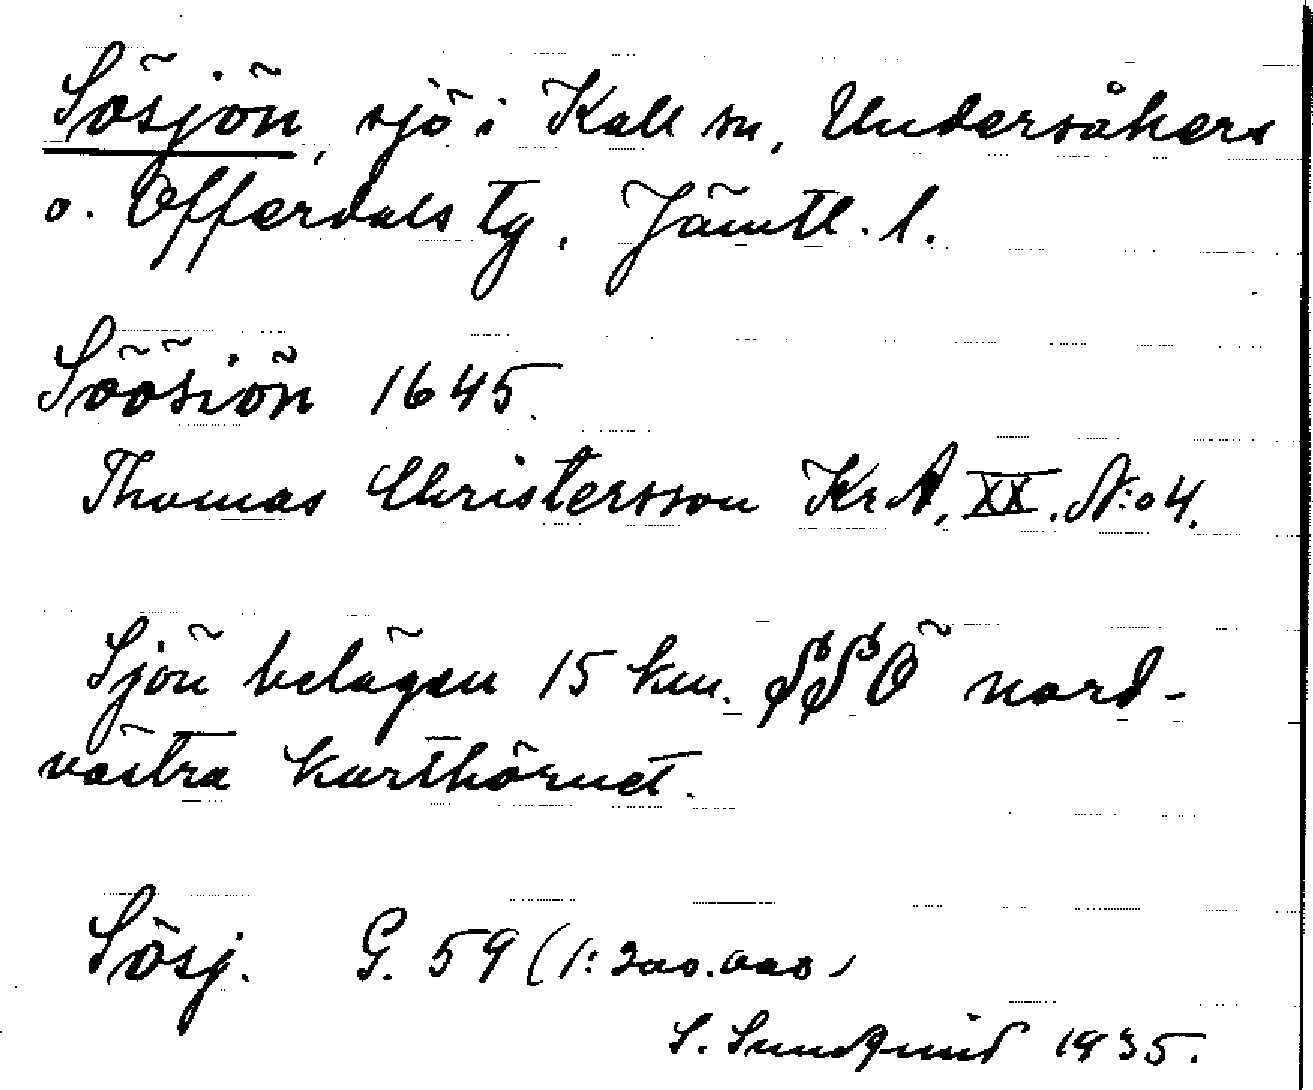 Sösjön, sjö i Kall sn, Undersåkers
o. Offerdals tg. Jämtl. l.
Söösiön 1645.
Thomas Christersson Kr A, XX. N:o 4.
Sjön belägen 15 km. SSÖ nord-
västra karthörnet.
Sösj. G. 59 (1:200.000)
S. Sundqvist 1935.